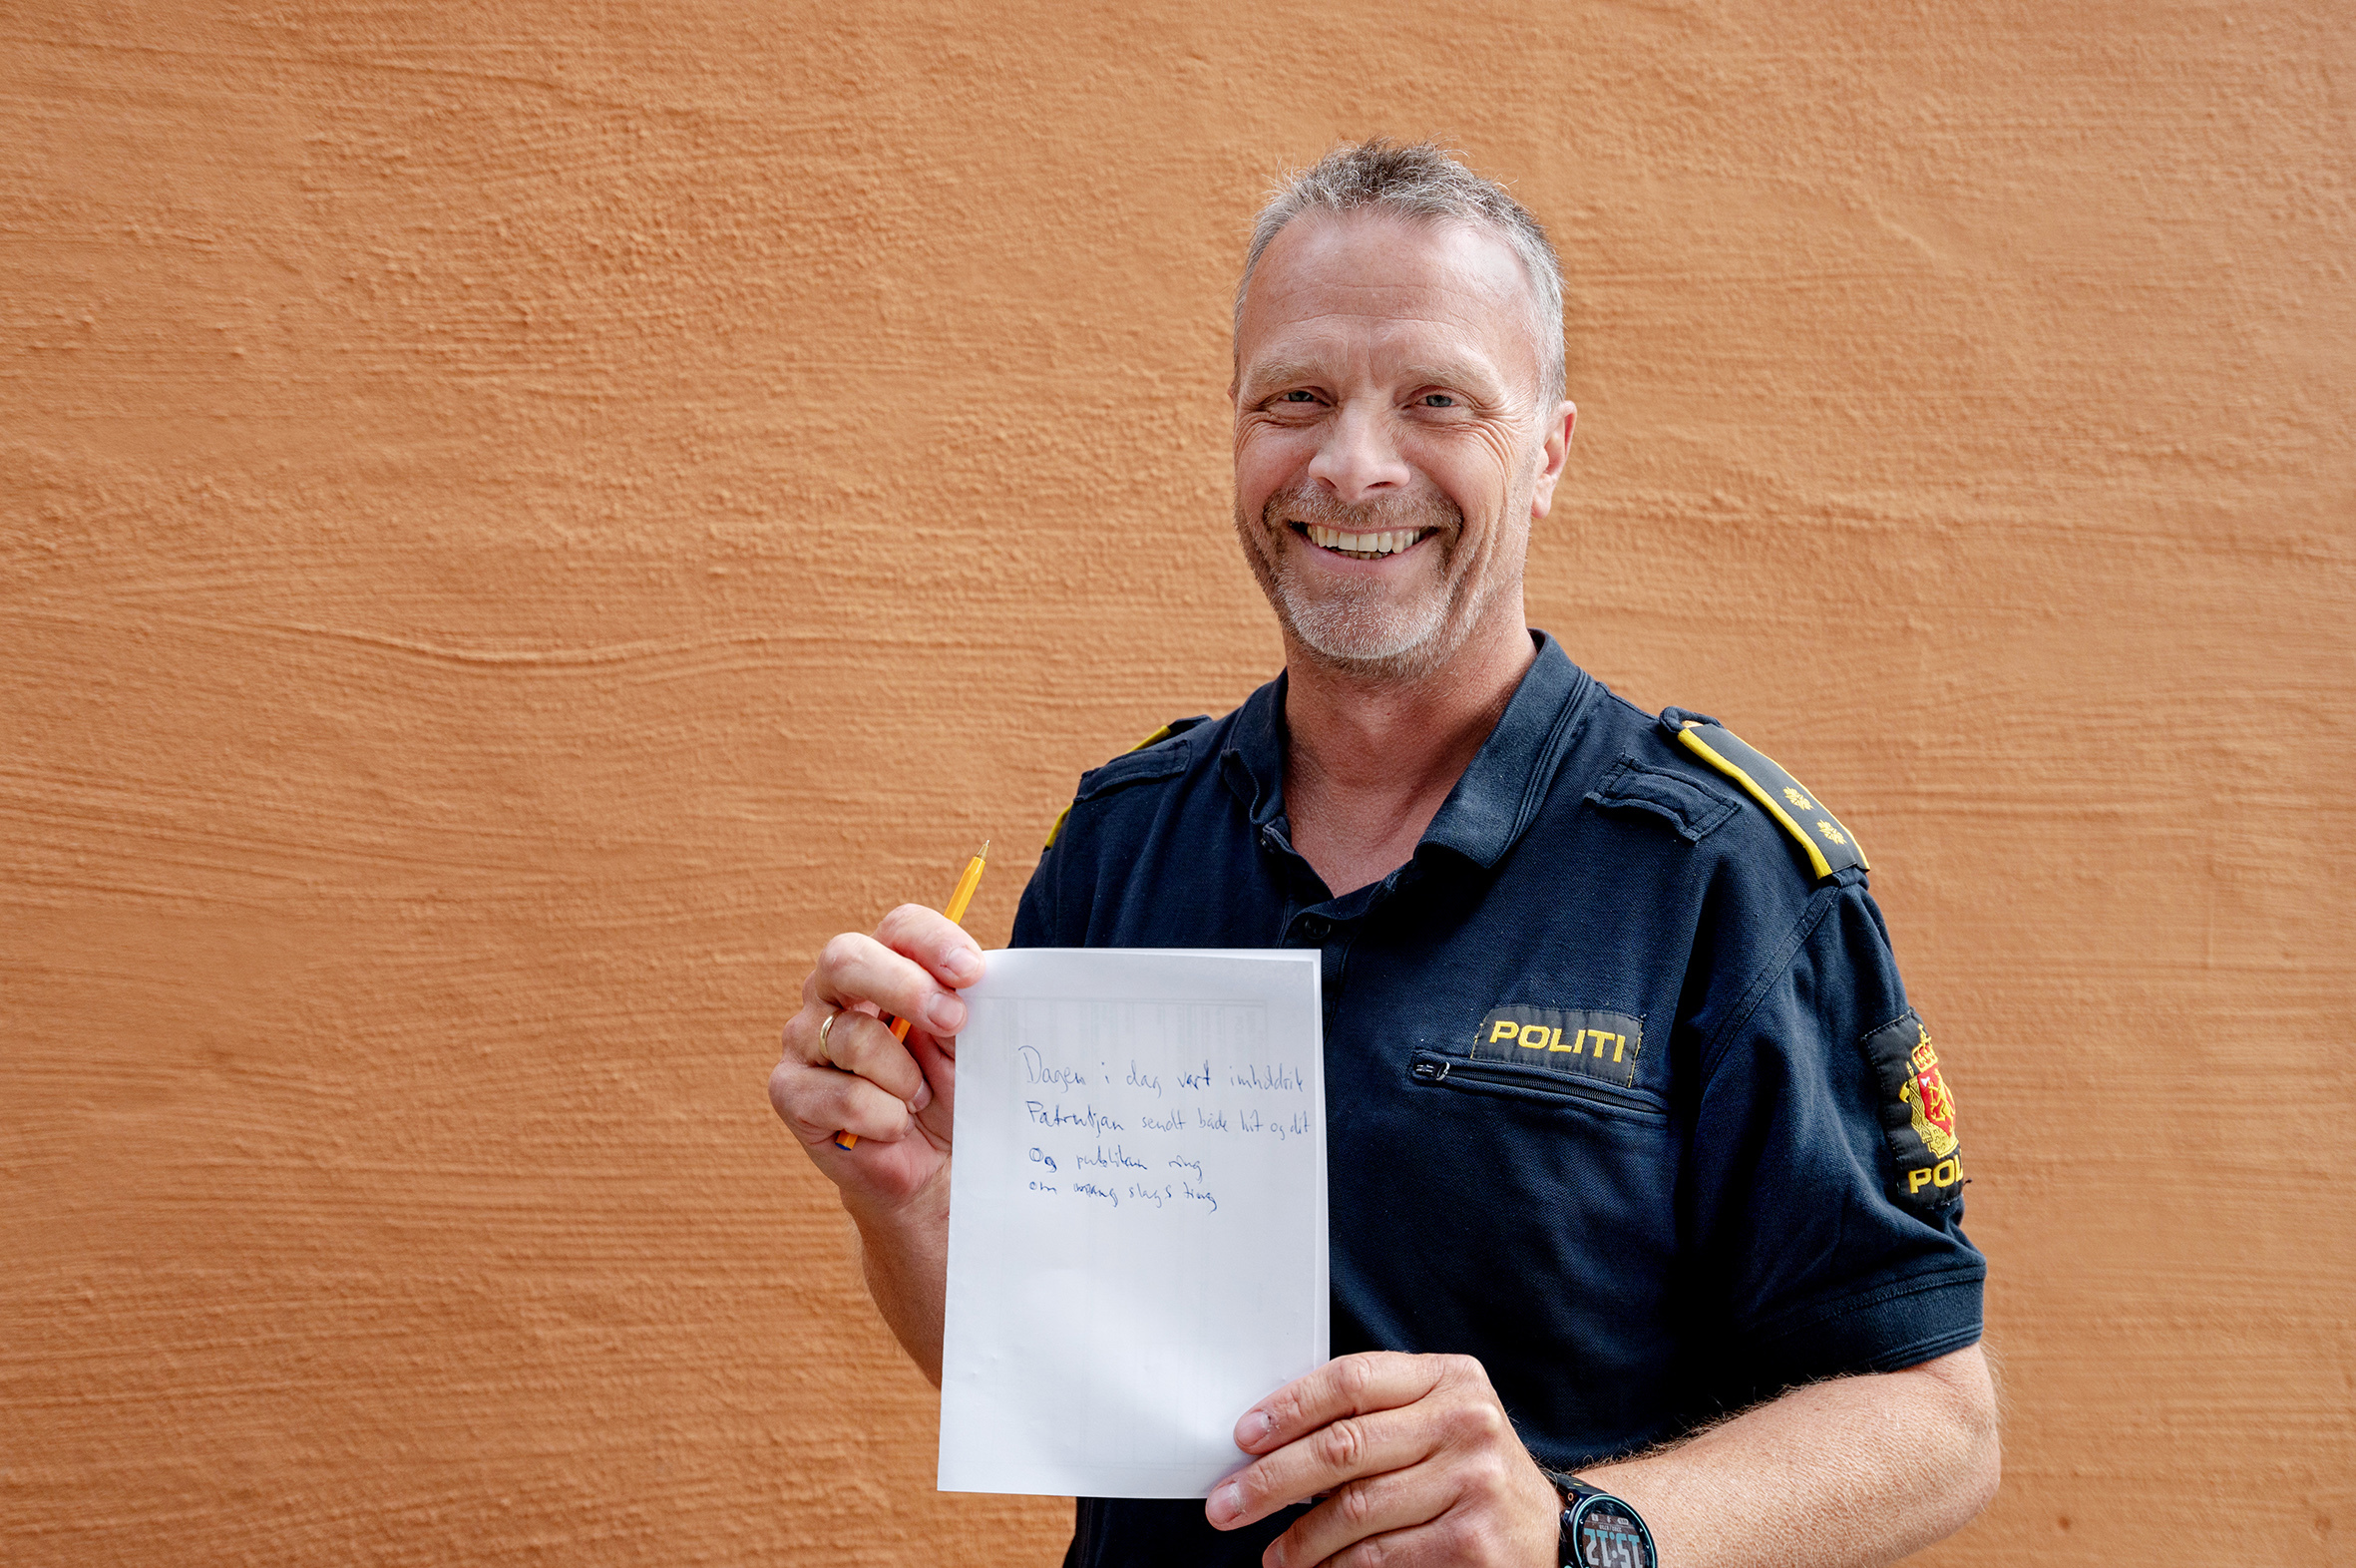 Dagen i dag vart innholdsrik
Patruljan sendt både hit og dit
Og publikum ring
om mang slags ting
POLITI
POL
15:12